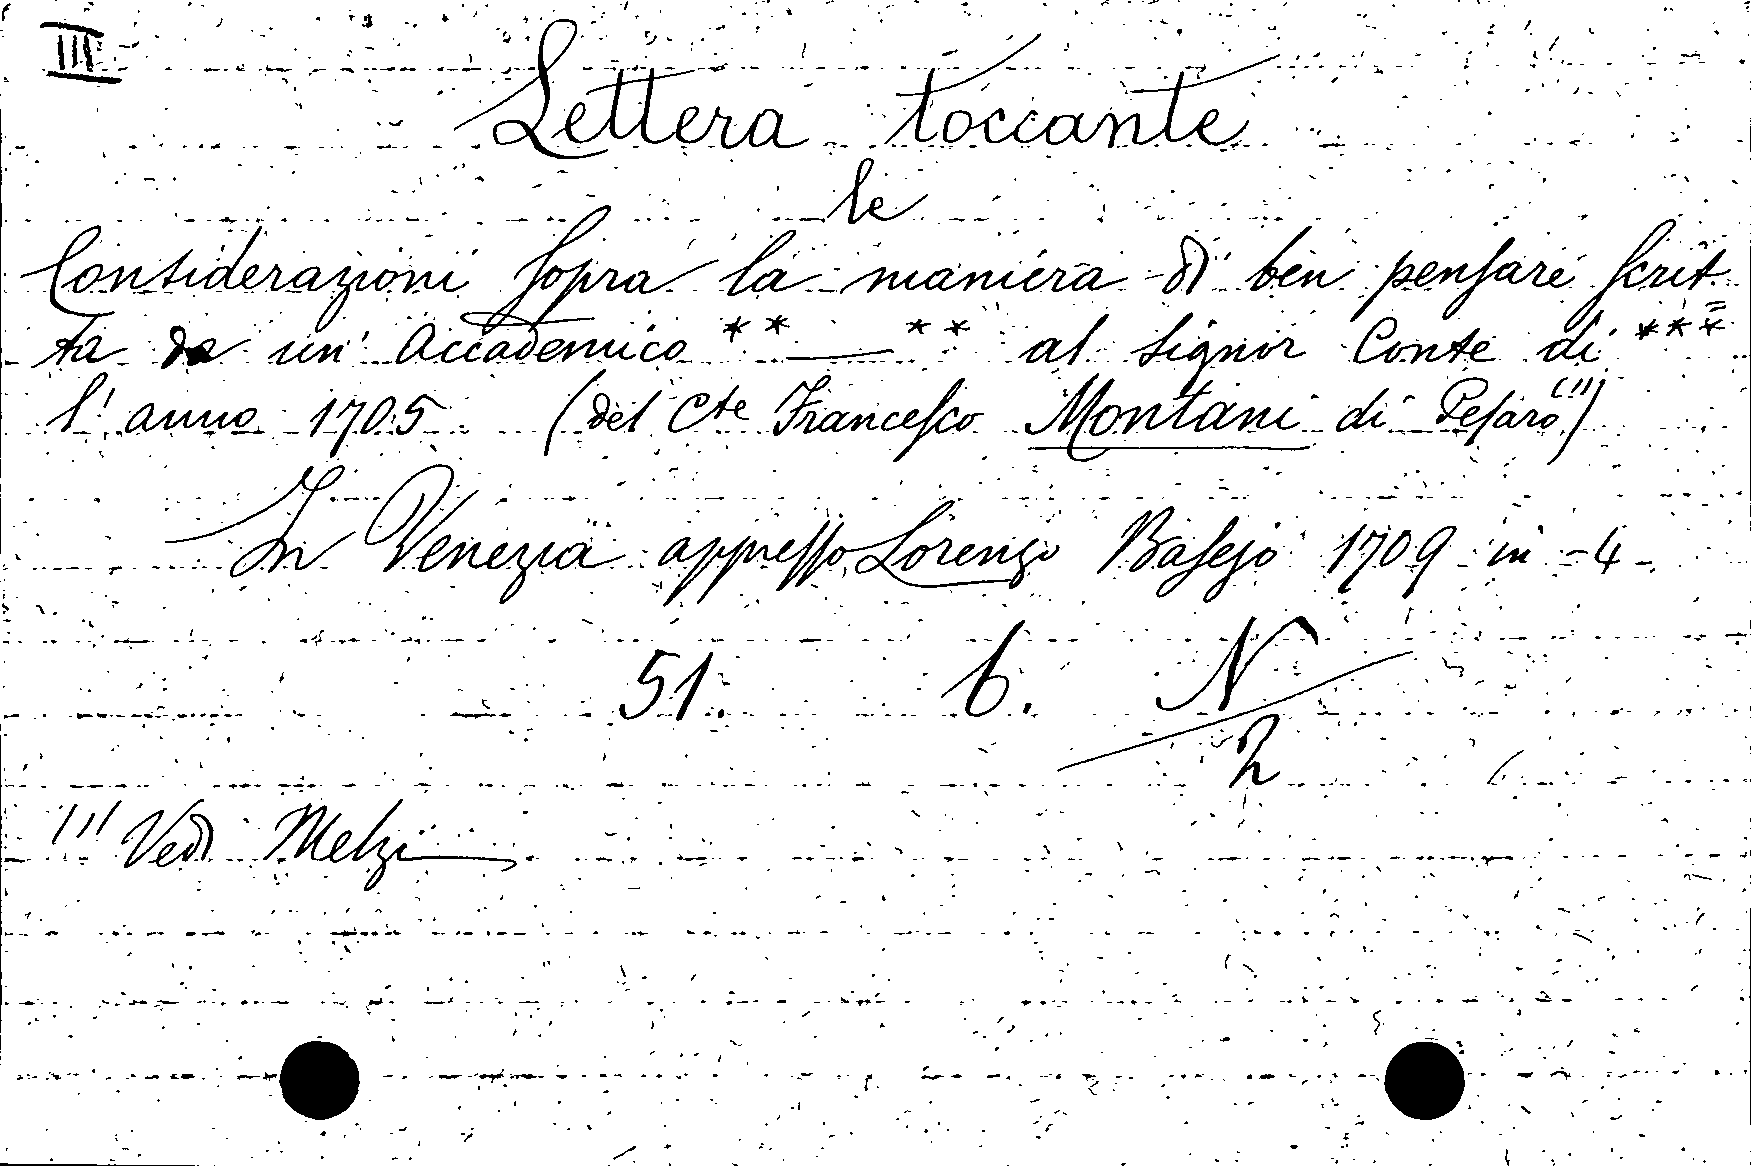 III
Lettera toccante
le
Considerazioni sopra la maniera di ben pensare scrit=
ta da un' Accademico ** — ** al Signor Conte di ***
l'anno 1705 (del Cte Francesco Montani di Pesaro (1))
In Venezia appresso Lorenzo Basejo 1709 in-4-
51. 6. N
2
(1) Vedi Melzi